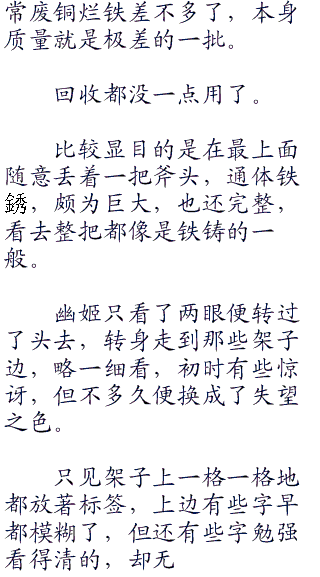 常废铜烂铁差不多了，本身
质量就是极差的一批。
回收都没一点用了。
比较显目的是在最上面
随意丢着一把斧头，通体铁
銹，颇为巨大，也还完整，
看去整把都像是铁铸的一
般。
幽姬只看了两眼便转过
了头去，转身走到那些架子
边，略一细看，初时有些惊
讶，但不多久便换成了失望
之色。
只见架子上一格一格地
都放著标签，上边有些字早
都模糊了，但还有些字勉强
看得清的，却无